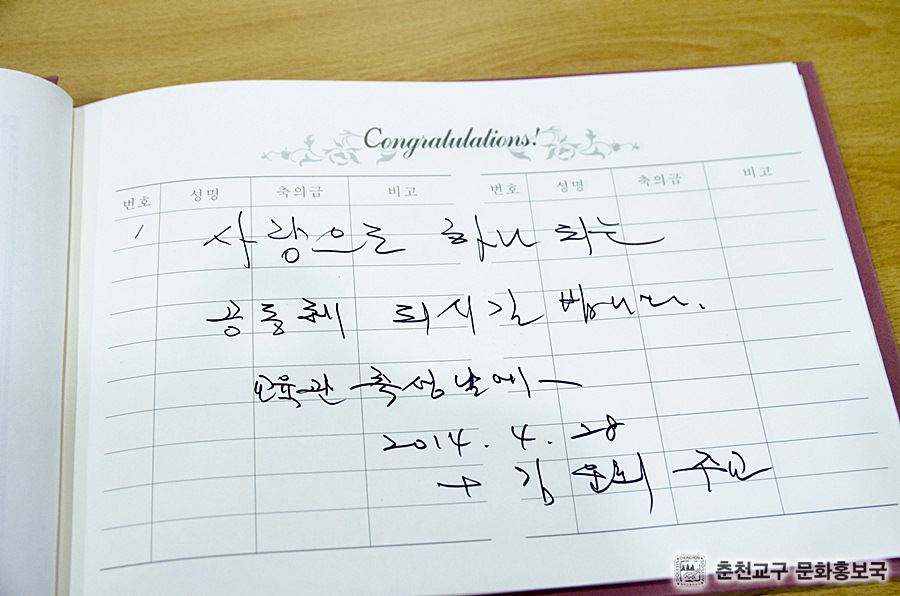 Congratulations!
번호 성명 축의금 비고 번호 성명 축의금 비고
1 사랑으로 하나 되는
공동체 되시길 빕니다.
교육관 축성날에
2014. 4. 28
+ 김운회 주교
춘천교구 문화홍보국